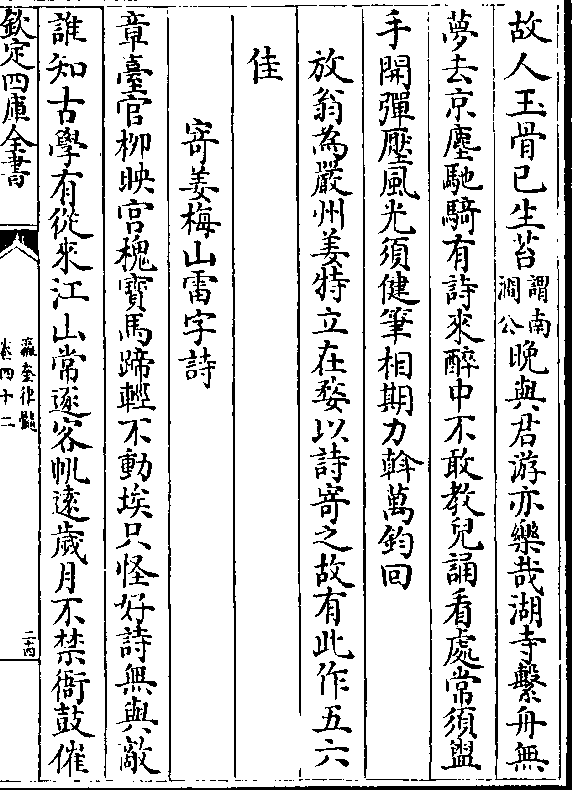 故人玉骨已生苔謂南澗公晩與君游亦樂哉湖寺繫舟無
夢去京塵馳騎有詩來醉中不敢教兒誦看處常須盥
手開彈壓風光須健筆相期力斡萬鈞回
放翁為嚴州姜特立在婺以詩寄之故有此作五六
佳
寄姜梅山雷字詩
章臺官柳映宮槐寶馬蹄輕不動埃只怪好詩無與敵
誰知古學有從來江山常逐客帆遠歲月不禁衙鼓催
欽定四庫全書
瀛奎律髓
卷四十二
二十四